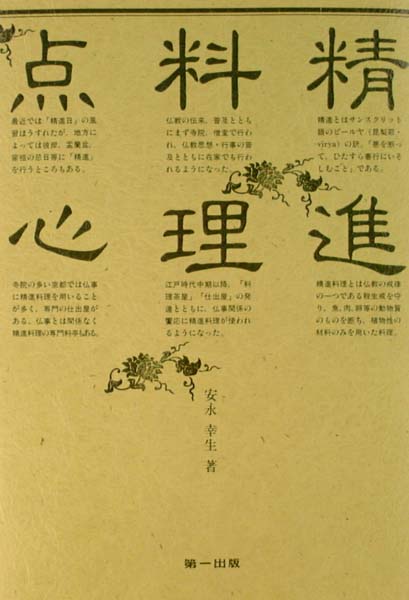 精
精進とはサンスクリット
語のビールヤ（毘梨耶・
virya）の訳。「悪を断っ
て、ひたすら善行にいそ
しむこと」である。
進
精進料理とは仏教の戒律
の一つである殺生戒を守
り、魚、肉、卵等の動物質
のものを断ち、植物性の
材料のみを用いた料理。
料
仏教の伝来、普及ととも
にまず寺院、僧堂で行わ
れ、仏教思想・行事の普
及とともに在家でも行わ
れるようになった。
理
江戸時代中期以降、「料
理茶屋」「仕出屋」の発
達とともに、仏事関係の
饗応に精進料理が使われ
るようになった。
点
最近では「精進日」の風
習はうすれたが、地方に
よっては彼岸、盂蘭盆、
宗祖の忌日等に「精進」
を行うところもある。
心
寺院の多い京都では仏事
に精進料理を用いること
が多く、専門の仕出屋が
ある。仏事とは関係なく
精進料理の専門料亭もある。
安永幸生 著
第一出版